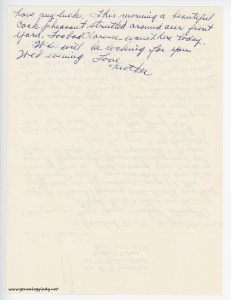 have any luck. This morning a beautiful
cock pheasant strutted around our front
yard. Too bad Clarence wasn't here today.
We will be looking for you
Wed evening Love
Mother
www.genealogylady.net